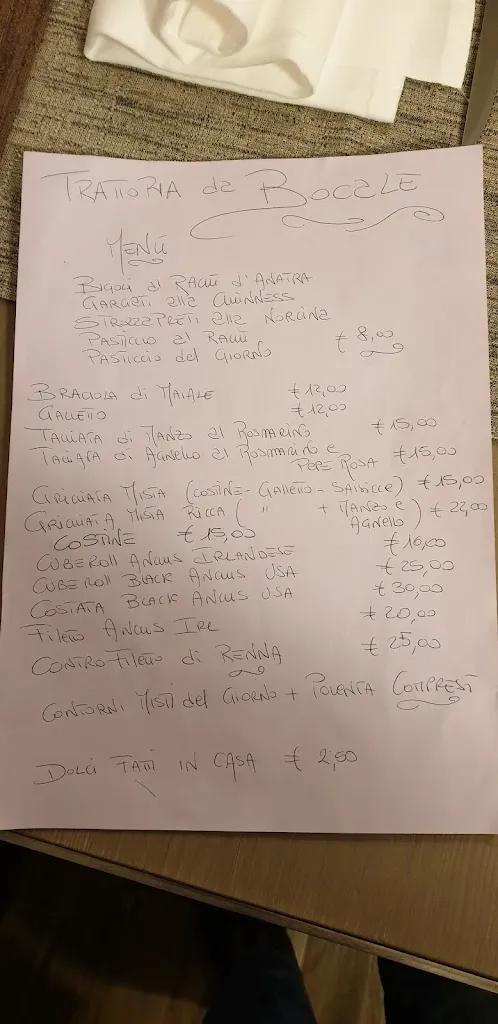 TRATTORIA da BOCALE
MENÚ
BIGOLI al RAGÚ d'ANATRA
GARGATI alla GUINNESS
STROZZAPRETI alla NORCINA
PASTICCIO al RAGÚ € 8,00
PASTICCIO del GIORNO
BRACIOLA di MAIALE € 12,00
GALLETTO € 12,00
TAGLIATA di MANZO al ROSMARINO € 15,00
TAGLIATA di AGNELLO al ROSMARINO e € 15,00
PEPE ROSA
GRIGLIATA MISTA (COSTINE - GALLETTO - SALSICCE) € 15,00
GRIGLIATA MISTA RICCA ( " + MANZO e AGNELLO ) € 22,00
COSTINE € 15,00
CUBEROLL ANGUS IRLANDESE € 16,00
CUBEROLL BLACK ANGUS USA € 25,00
COSTATA BLACK ANGUS USA € 30,00
FILETTO ANGUS IRL € 20,00
CONTROFILETTO di RENNA € 25,00
CONTORNI MISTI del GIORNO + POLENTA COMPRESI
DOLCI FATTI IN CASA € 2,50